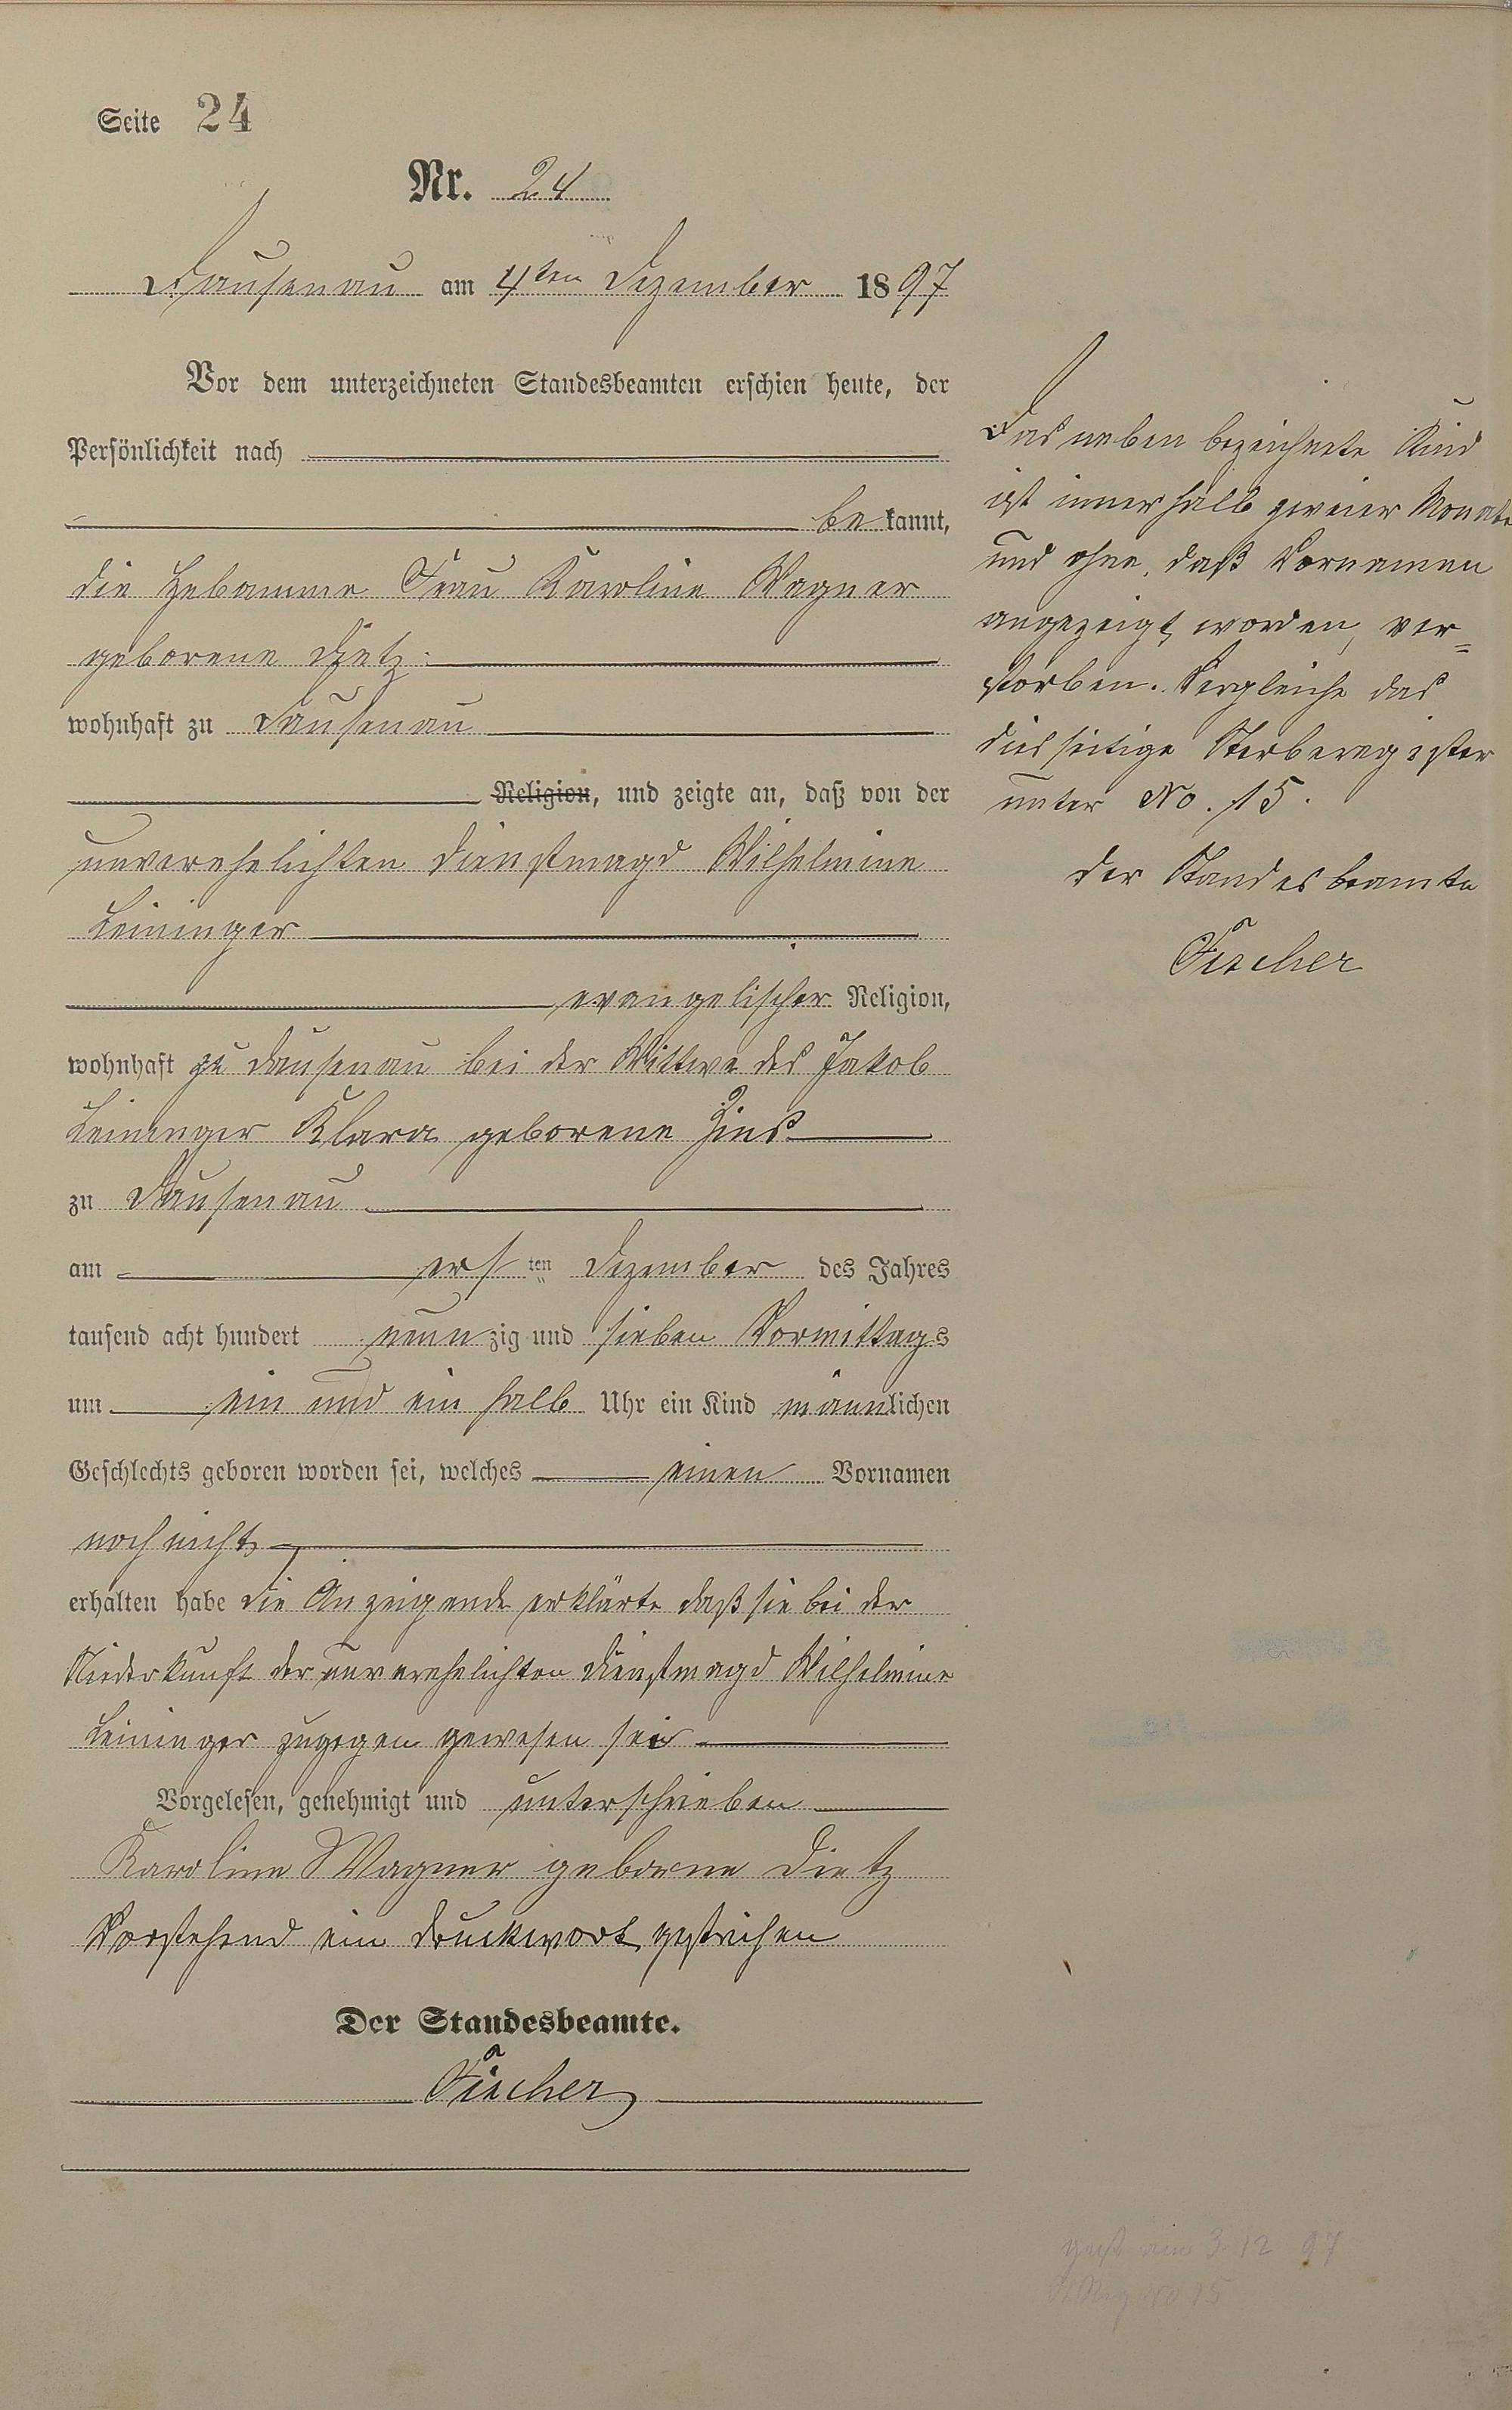 Seite 24
Nr. 24
Dausenau am 4ten Dezember 1897
Vor dem unterzeichneten Standesbeamten erschien heute, der
Persönlichkeit nach
bekannt,
die Hebamme Frau Karoline Wagner
geborene Dietz
wohnhaft zu Dausenau
Religion, und zeigte an, daß von der
unverehelichten Dienstmagd Wilhelmine
Leininger
evangelischer Religion,
wohnhaft zu Dausenau bei der Wittwe des Jakob
Leininger Klara geborene
zu Dausenau
am ersten Dezember des Jahres
tausend acht hundert neunzig und sieben Vormittags
um ein und ein halb Uhr ein Kind männlichen
Geschlechts geboren worden sei, welches einen Vornamen
noch nicht
erhalten habe die Anzeigende erklärte daß sie bei der
Niederkunft der unverehelichten Dienstmagd Wilhelmine
Leininger zugegen gewesen sei
Vorgelesen, genehmigt und unterschrieben
Karoline Wagner geborne Dietz
Vorstehend ein Druckwort gestrichen
Der Standesbeamte.
Fischer
Das neben bezeichnete Kind
ist innerhalb zweier Monate
und ohne, daß Vornamen
angezeigt worden, ver=
storben. Vergleiche das
diesseitige Sterberegister
unter No. 15.
Der Standesbeamte
Fischer
gest am 3. 12 97
No 15